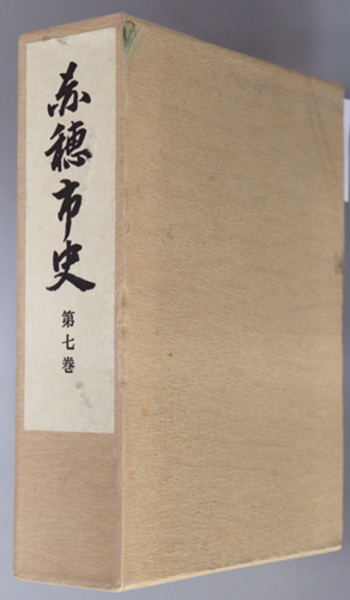 赤穂市史
第七巻